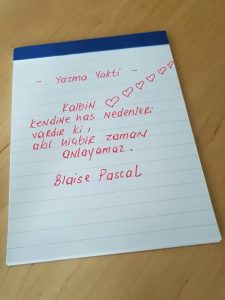 - Yazma Vakti -
Kalbin
kendine has nedenleri
vardır ki,
akıl hiçbir zaman
anlayamaz.
Blaise Pascal